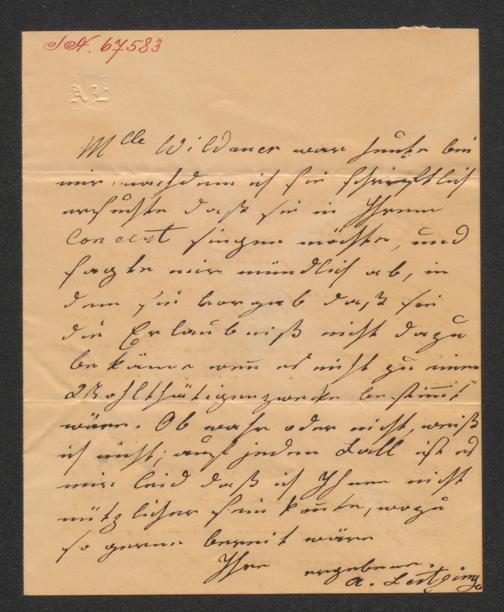 I.N. 67583
Mlle Wildauer war heute bei
mir, nachdem ich sie schriftlich
ersuchte daß sie in Ihrem
Concert singen möchte, und
sagte mir mündlich ab, in
dem sie vorgab daß sie
die Erlaubniß nicht dazu
bekäme wen̄ es nicht zu einem
Wohlthätigenzwecke bestim̄t
wäre. Ob wahr oder nicht, weiß
ich nicht; auf jeden Fall ist es
mir leid daß ich Ihnen nicht
nützlicher sein kon̄te, wozu
so gerne bereit wäre
Ihre ergebene
A.